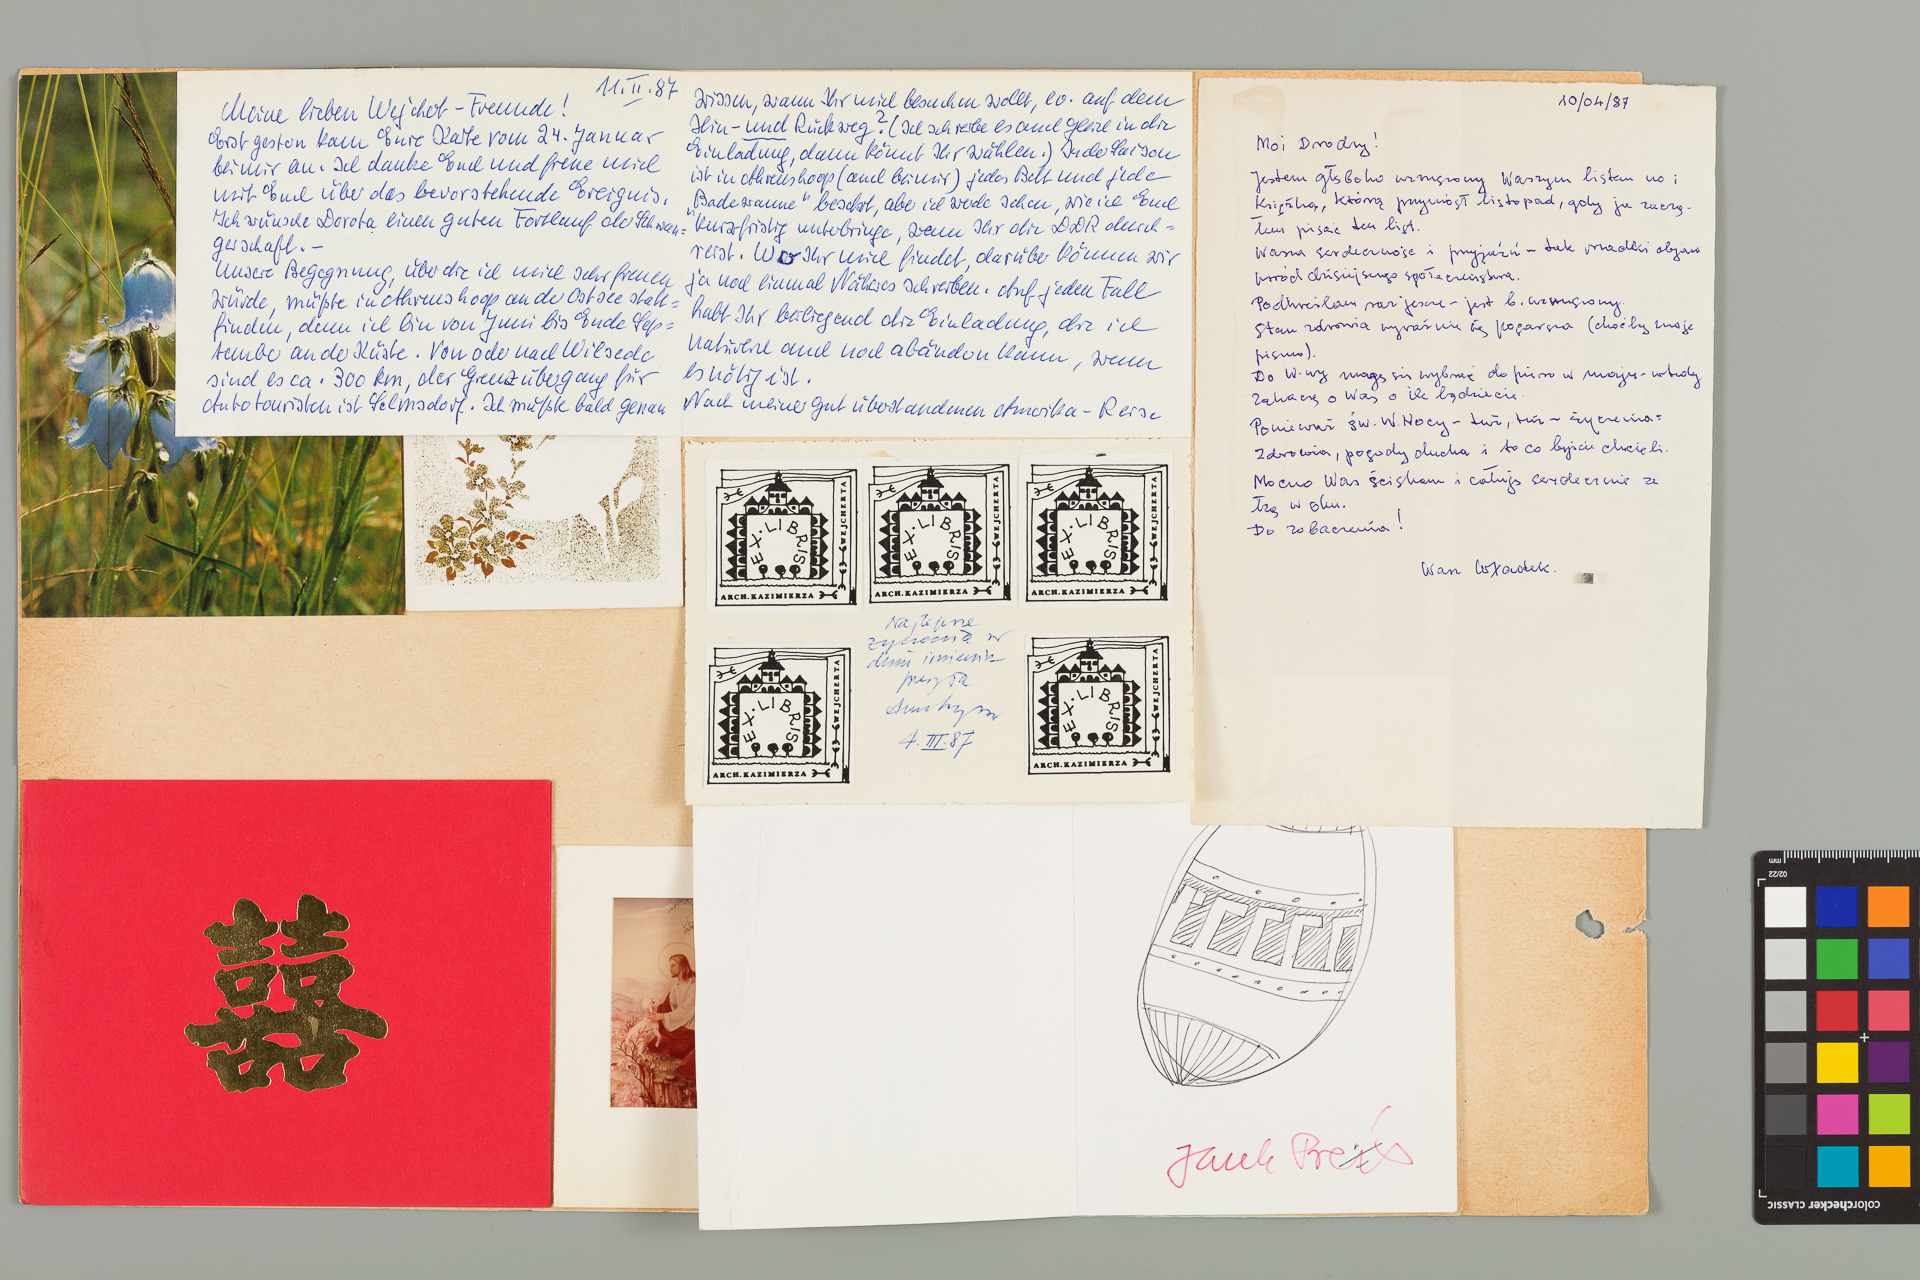 11.II.87
Meine lieben Wejchert-Freunde!
Erst gestern kam Eure Karte vom 24. Januar
bei mir an. Ich danke Euch und freue mich
mit Euch über das bevorstehende Ereignis.
Ich wünsche Dorota einen guten Fortlauf der Schwan=
gerschaft. –
Unsere Begegnung, über die ich mich sehr freuen
würde, müßte in Ahrenshoop an der Ostsee statt=
finden, denn ich bin von Juni bis Ende Sep=
tember an der Küste. Von oder nach Wilsede
sind es ca. 300 km, der Grenzübergang für
Autotouristen ist Selmsdorf. Ich müßte bald genau
wissen, wann Ihr mich besuchen wollt, ev. auf dem
Hin- und Rückweg? (Ich schreibe es auch gleich in die
Einladung, dann könnt Ihr wählen.) In der Saison
ist in Ahrenshoop (auch bei mir) jedes Bett und jede
"Badewanne" besetzt, aber ich werde sehen, wie ich Euch
kurzfristig unterbringe, wenn Ihr die DDR durch=
reist. Wo Ihr mich findet, darüber können wir
ja noch einmal Näheres schreiben. Auf jeden Fall
habt Ihr beiliegend die Einladung, die ich
natürlich auch noch abändern kann, wenn
es nötig ist.
Nach meiner gut überstandenen Amerika-Reise
10/04/87
Moi Drodzy!
Jestem głęboko wzruszony Waszym listem no i
książką, którą przyniósł listopad, gdy ja zaczą-
łem pisać ten list.
Wasza serdeczność i przyjaźń – tak rzadki objaw
wśród dzisiejszego społeczeństwa.
Podkreślam raz jeszcze – jest b. wzruszony.
Stan zdrowia wyraźnie się pogarsza (choćby moje
pismo).
Do W-wy mogę się wybrać dopiero w maju – wtedy
zahaczę o Was o ile będziecie.
Ponieważ św. W.Nocy – tuż, tuż – życzenia:
Zdrowia, pogody ducha i to co byście chcieli.
Mocno Was ściskam i całuję serdecznie ze
łzą w oku.
Do zobaczenia!
Wasz Władek.
EX·LIBRIS
WEJCHERTA
ARCH.KAZIMIERZA
EX·LIBRIS
WEJCHERTA
ARCH.KAZIMIERZA
EX·LIBRIS
WEJCHERTA
ARCH.KAZIMIERZA
Najlepsze
życzenia w
dniu imienin
przesyła
4.III.87
EX·LIBRIS
WEJCHERTA
ARCH.KAZIMIERZA
EX·LIBRIS
WEJCHERTA
ARCH.KAZIMIERZA
囍
Janek
mm
02/22
colorchecker CLASSIC